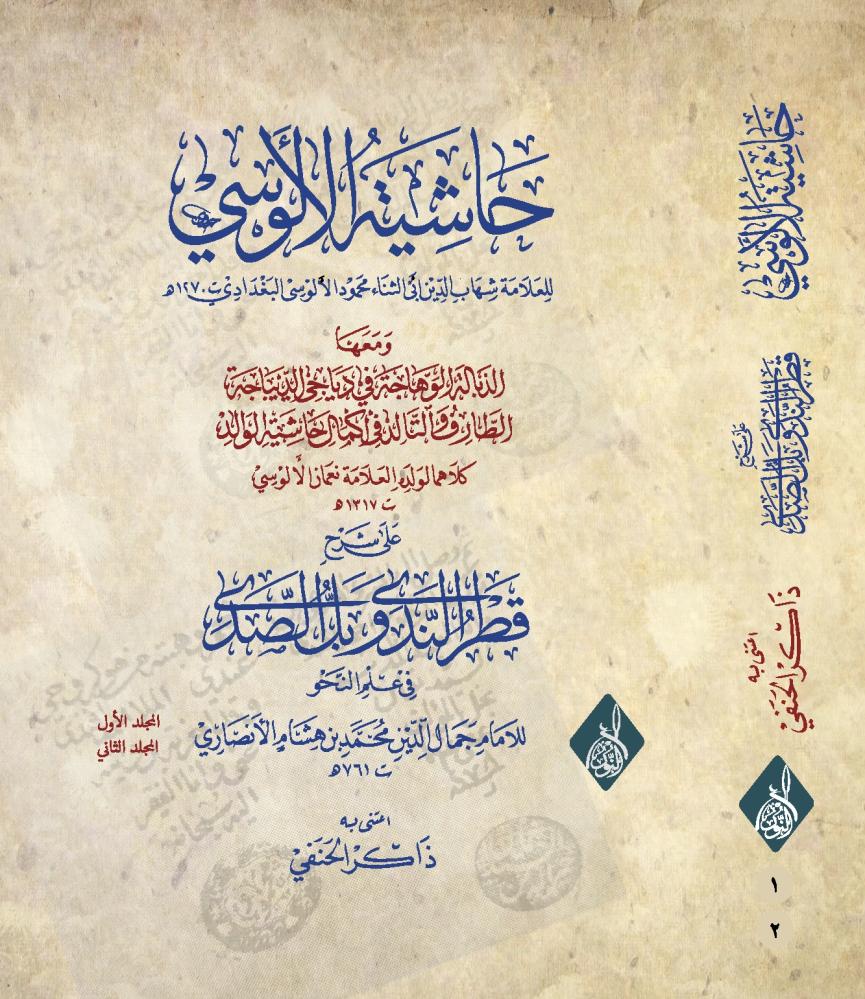 حَاشِيَةُ الأَلُوسِي
للعلامة شهاب الدين أبي الثناء محمود الألوسي البغدادي ت ١٢٧٠هـ
وَمَعَهَا
الذبالة الوهاجة في دياجي الديباجة
الطارف والتالد في إكمال حاشية الوالد
كلاهما لولده العلامة نعمان الألوسي
ت ١٣١٧هـ
عَلَى شَرْحِ
قَطْرُ النَّدَى وَبَلُّ الصَّدَى
فِي عِلْمِ النَّحْوِ
للامام جَمَال الدِّين مُحَمَّد بن هِشَام الأَنْصَارِي
ت ٧٦١هـ
المجلد الأول
المجلد الثاني
اعتنى به
ذَاكِر الحَنَفِي
النور
حَاشِيَةُ الأَلُوسِي
عَلَى شَرْح
قَطْرُ النَّدَى وَبَلُّ الصَّدَى
اعتنى به
ذَاكِر الحَنَفِي
النور
١
٢